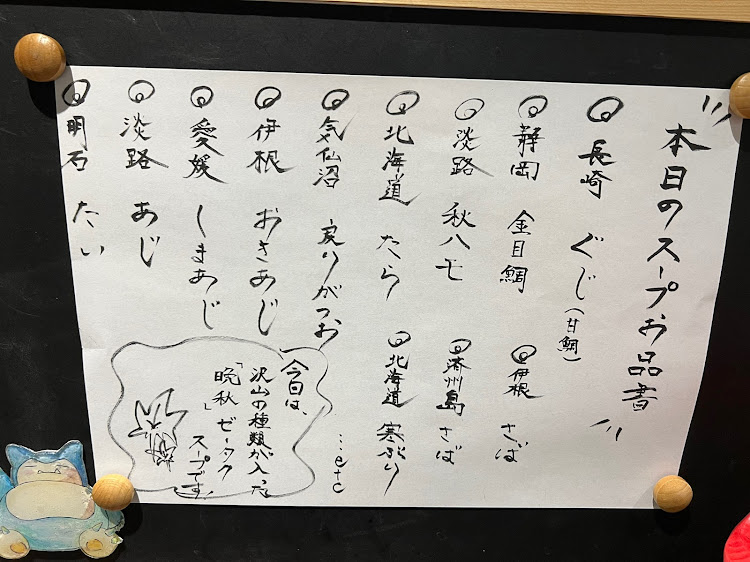 本日のスープお品書
◎長崎 ぐじ(甘鯛)
◎静岡 金目鯛
◎伊根 さば
◎淡路 秋ハモ
◎済州島 さば
◎北海道 たら
◎北海道 寒ぶり
◎気仙沼 戻りがつお
…etc
◎伊根 おきあじ
◎愛媛 しまあじ
◎淡路 あじ
◎明石 たい
今日は、
沢山の種類が入った
「晩秋」ゼータク
スープです。